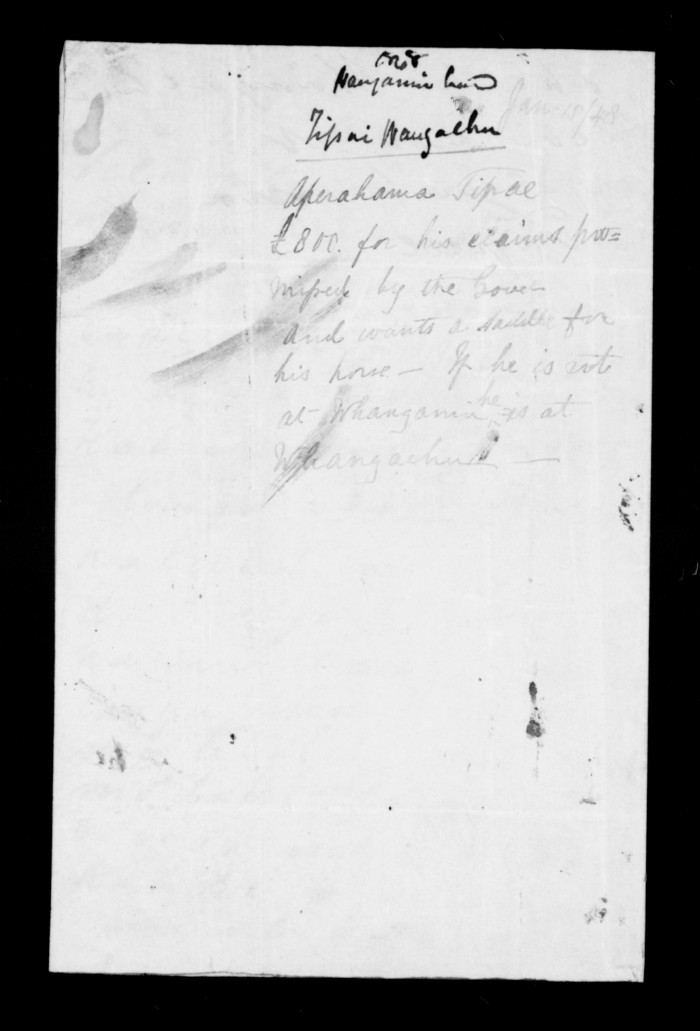 1848
Wanganui Land
Jan 15/48
Tipai Wangaehu
Aperahama Tipae
£800. for his claims pro=
mised by the Gover
and wants a saddle for
his horse — If he is not
at Whanganui he is at
Whangaehu —